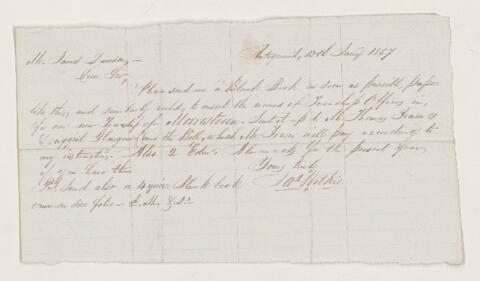 Antigonish, 13th Jany 1857
Mr. James Dawson,
Dear Sir,
Please send me a Blank Book as soon as possible, paper
like this, and similarly ruled, to insert the names of Township Officers in,
for our new Township of Morristown. Send it up to Mr. Thomas Fraser's
New Glasgow, and the Bill, which Mr. Fraser will pay according to
my instructions. Also 2 Almanacks for the present year
if you have them
Yours truly
P.S. Send also a 4 quire Blank book
common size folio